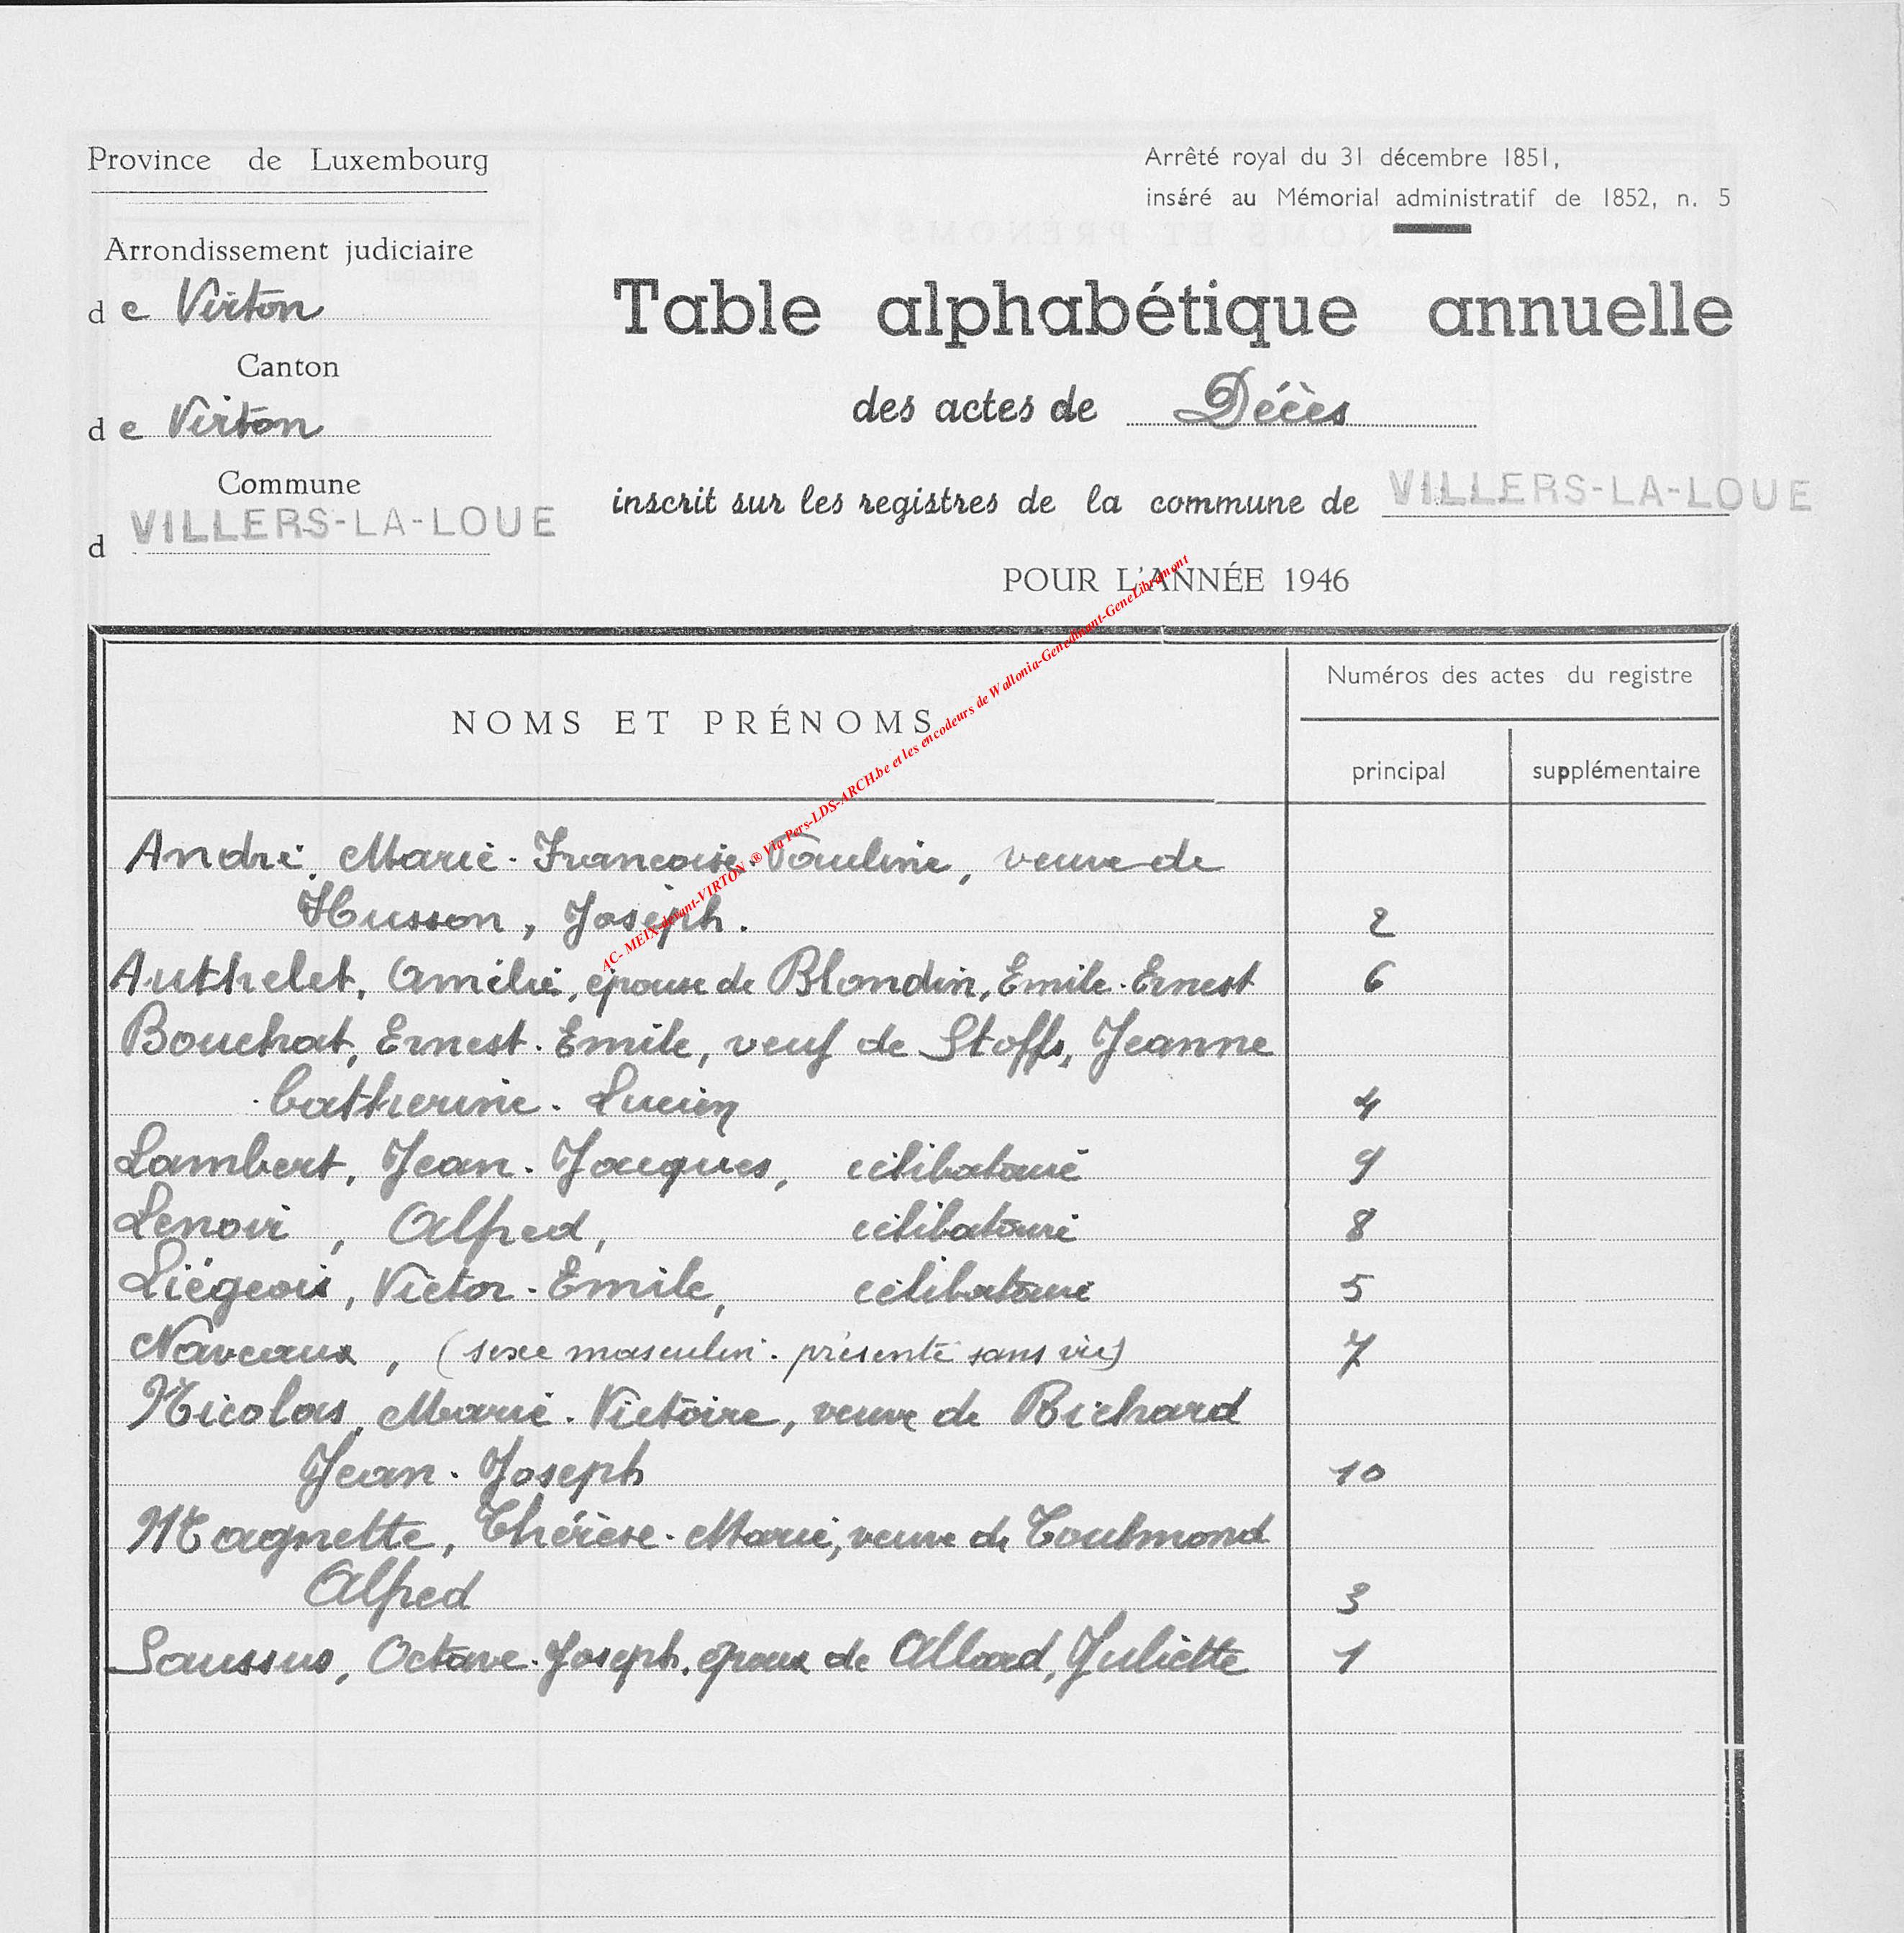 Province de Luxembourg
Arrêté royal du 31 décembre 1851,
inséré au Mémorial administratif de 1852, n. 5
Arrondissement judiciaire
de Virton
Canton
de Virton
Commune
d VILLERS-LA-LOUE
Table alphabétique annuelle
des actes de Décès
inscrit sur les registres de la commune de VILLERS-LA-LOUE
POUR L'ANNÉE 1946
NOMS ET PRÉNOMS
Numéros des actes du registre
principal supplémentaire
André, Marie-Françoise-Pauline, veuve de
Husson, Joseph. 2
Authelet, Amélie, épouse de Blondin, Emile-Ernest 6
Bouchat, Ernest-Emile, veuf de Stoffs, Jeanne
Catherine-Lucien 4
Lambert, Jean-Jacques, célibataire 9
Lenoir, Alfred, célibataire 8
Liégeois, Victor-Emile, célibataire 5
Naveaux, (sexe masculin-présenté sans vie) 7
Nicolas, Marie-Victoire, veuve de Richard
Jean-Joseph 10
Magnette, Thérèse-Marie, veuve de Toulmond
Alfred 3
Saussus, Octave-Joseph, époux de Allard, Juliette 1
AC- MEIX-devant-VIRTON ® Via Pers-LDS-ARCH.be et les encodeurs de Wallonia-Genedinant-GeneLibramont